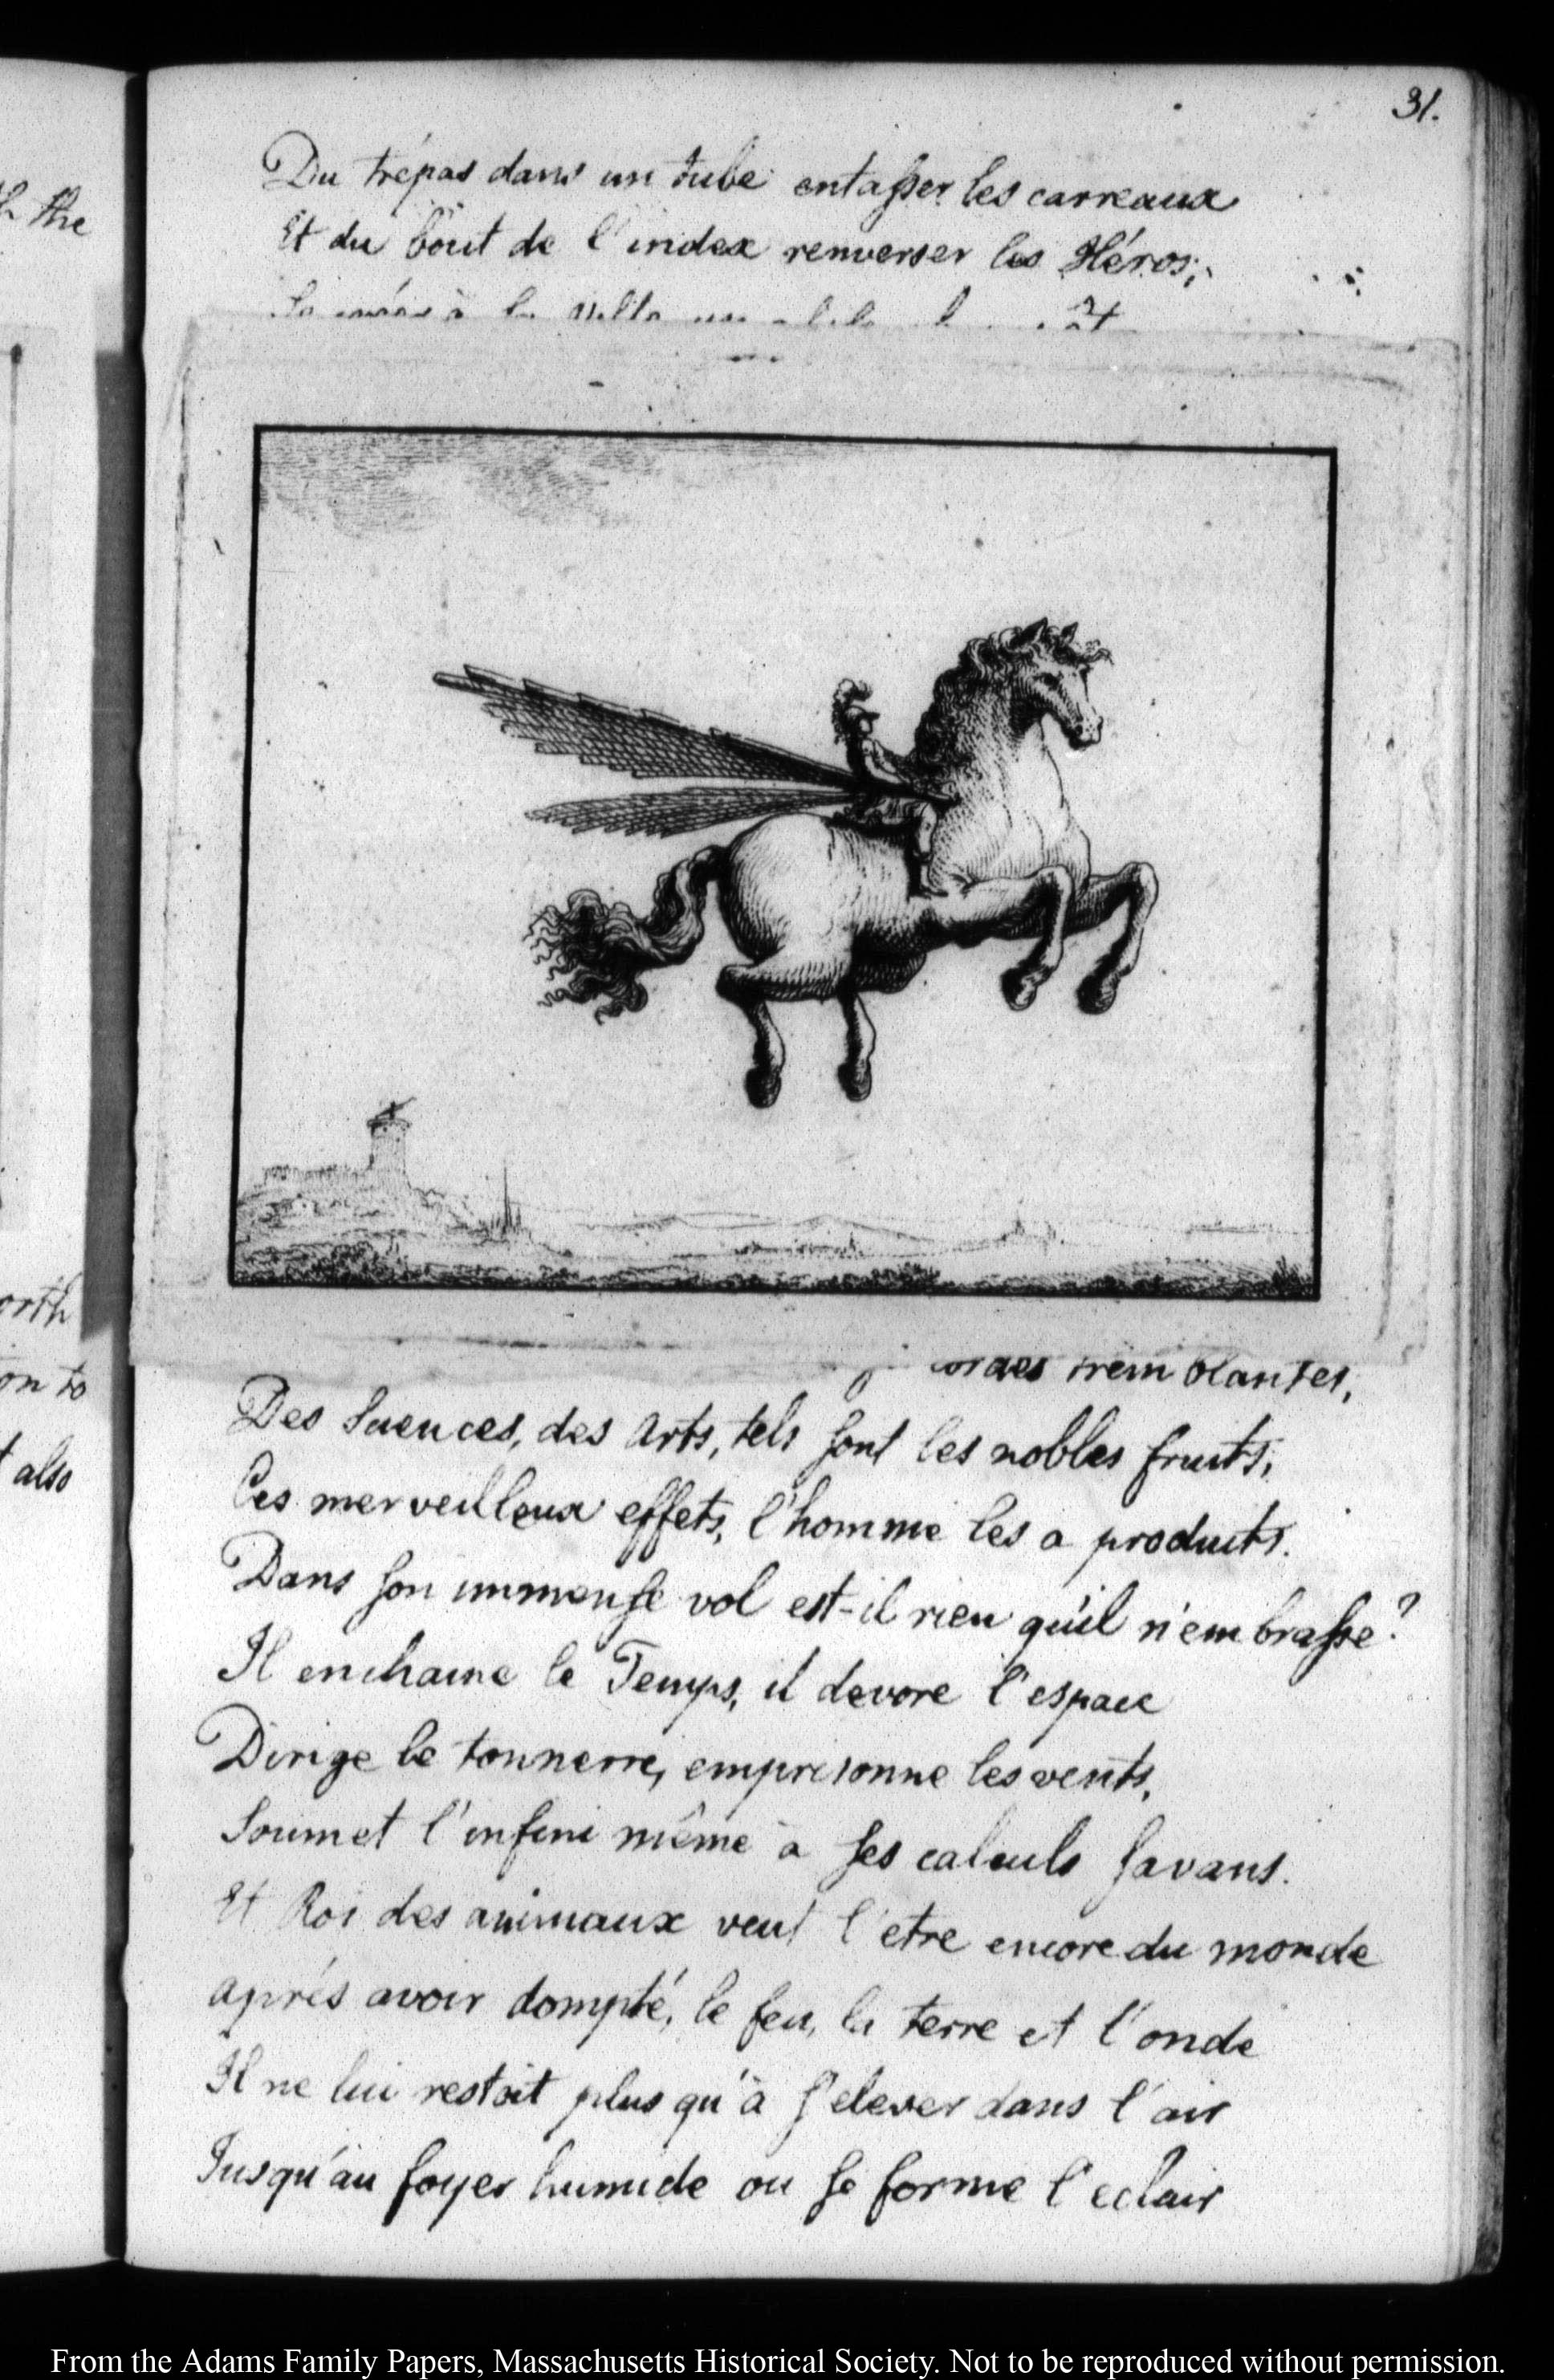 31.
Du trépas dans un tube entasser les carreaux
Et du bout de l'index renverser les Héros;
à la
tremblantes,
Des Sciences, des Arts, tels sont les nobles fruits;
Ces merveilleux effets, l'homme les a produits.
Dans son immense vol est-il rien qu'il n'embrasse?
Il enchaine le Temps, il devore l'espace
Dirige le tonnerre, emprisonne les vents,
Soumet l'infini même à ses calculs savans.
Et Roi des animaux veut l'etre encore du monde
Aprés avoir dompté, le feu, la terre et l'onde
Il ne lui restoit plus qu'à s'elever dans l'air
Jusqu'au foyer humide ou se forme l'eclair
the
orth
on to
also
From the Adams Family Papers, Massachusetts Historical Society. Not to be reproduced without permission.